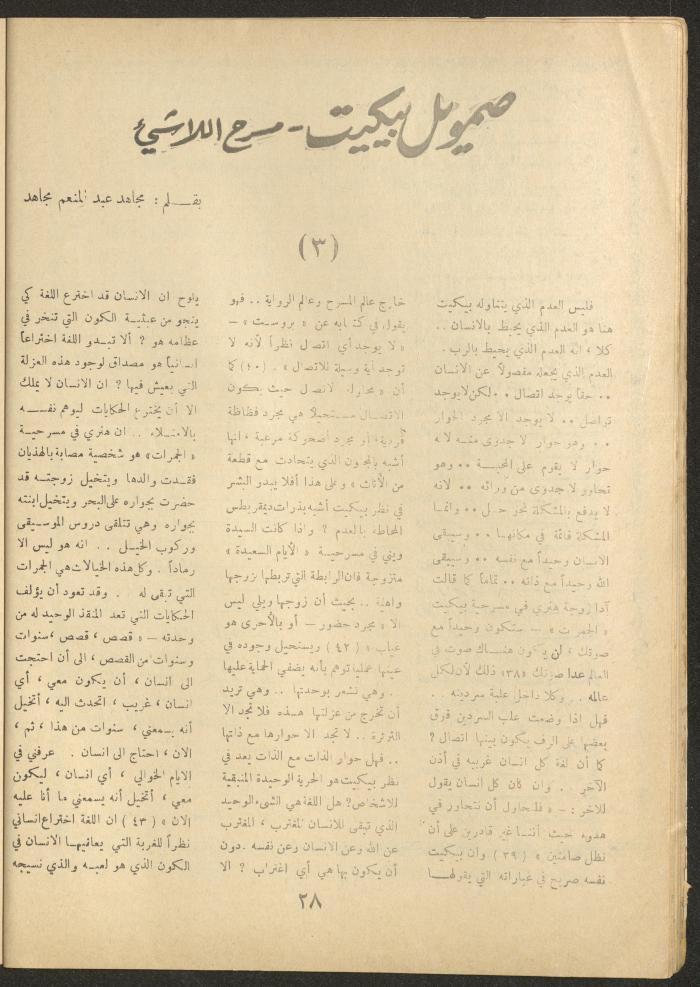 صموئيل بيكيت - مسرح اللاشيء
بقـــلم : مجاهد عبد المنعم مجاهد
(٣)
فليس العدم الذي يتناوله بيكيت
هنا هو العدم الذي يحيط بالانسان ..
كلا ، انه العدم الذي يحيط بالرب .
العدم الذي يجعله مفصولاً عن الانسان
.. حقاً يوجد اتصال .. ولكن لا يوجد
تواصل .. لا يوجد الا مجرد الحوار
.. وهو حوار لا جدوى منه لانه
حوار لا يقوم على المحبة .. وهو
تحاور لا جدوى من ورائه .. لانه
لا يدفع بالمشكلة نحو حل .. وانما
المشكلة قائمة في مكانها .. وسيبقى
الانسان وحيداً مع نفسه .. وسيبقى
الله وحيداً مع ذاته .. تماماً كما قالت
آدا زوجة هنري في مسرحية بيكيت
« الجمرات » – ستكون وحيداً مع
صوتك ، لن يكون هنــاك صوت في
العالم عدا صوتك «٣٨» ذلك لأن لكل
عالمه . . وكلا داخل علبة سردينه . .
فهل اذا وضعت علب السردين فوق
بعضها على الرف يكون بينها اتصال ؟
كما أن لغة كل انسان غريبه في أذن
الآخر . . وان كان كل انسان يقول
للآخر : – « فلنحاول أن نتحاور في
هدوء حيث أننــا غير قادرين على أن
نظل صامتين » ( ٣٩ ) وان بيكيت
نفسه صريح في عباراته التي يقولهــا
خارج عالم المسرح وعالم الرواية .. فهو
يقول في كتــابه عن « بروست » –
« لا يوجد أي اتصال نظراً لأنه لا
توجد أية وسيلة للاتصال » . (٤٠) كما
أن « محاولة الاتصال حيث يكون
الاتصــال مستحيلا هي مجرد فظاظة
قردية ، أو مجرد أضحوكة مرعبة ، انها
أشبه بالجنون الذي يتحادث مع قطعة
من الأثاث » وعلى هذا أفلا يبدو البشر
في نظر بيكيت أشبه بذرات ديمقريطس
المحاطة بالعدم ؟ واذا كانت السيدة
ويني في مسرحيــة « الأيام السعيدة »
متزوجة فان الرابطة التي تربطها بزوجها
واهية .. بحيث أن زوجها ويلي ليس
الا « مجرد حضور – أو بالأحرى هو
غياب » ( ٤٢ ) ويستحيل وجوده في
عينها عمليا توهم بأنه يضفي الحماية عليها
. وهي تشعر بوحدتها .. وهي تريد
أن تخرج من عزلتها هــذه فلا تجد الا
الثرثرة .. لا تجد الا حوارها مع ذاتها
.. فهل حوار الذات مع الذات يعد في
نظر بيكيت هو الحرية الوحيدة المتبقية
للاشخاص ؟ هل اللغة هي الشيء الوحيد
الذي تبقى للانسان المغترب ، المغترب
عن الله وعن الانسان وعن نفسه . دون
أن يكون بها هي أي اغتراب ؟ الا
يلوح ان الانسان قد اخترع اللغة كي
ينجو من عبثيــة الكون التي تنخر في
عظامه هو ? ألا تبــدو اللغة اختراعاً
انسانياً هو مصداق لوجود هذه العزلة
التي يعيش فيها ? ان الانسان لا يملك
الا أن يخترع الحكايات ليوهم نفســه
بالامتــلاء .. ان هنري في مسرحيــة
« الجمرات » هو شخصية مصابة بالهذيان
فقــدت والدها ويتخيل زوجتــه قد
حضرت بجواره على البحر ويتخيل ابنته
بجواره وهي تتلقى دروس الموســيقى
وركوب الخيــل . . انه هو ليس الا
رماداً . وكل هذه الخيالات هي الجمرات
التي تبقى له . . وقد تعود أن يؤلف
الحكايات التي تعد المنقذ الوحيد له من
وحدته – « قصص ، قصص ، سنوات
وسنوات من القصص ، الى أن احتجت
الى انسان ، أن يكون معي ، أي
انسان ، غريب ، اتحدث اليه ، أتخيل
أنه يسمعني ، سنوات من هذا ، ثم ،
الان ، احتاج الى انسان . عرفني في
الايام الخوالي ، أي انسان ، ليكون
معي ، أتخيل أنه يسمعني ما أنا عليه
الان » ( ٤٣ ) ان اللغة اختراع انساني
نظراً للغربة التي يعانيهــا الانسان في
الكون الذي هو لعبــه والذي نسيجه
٢٨